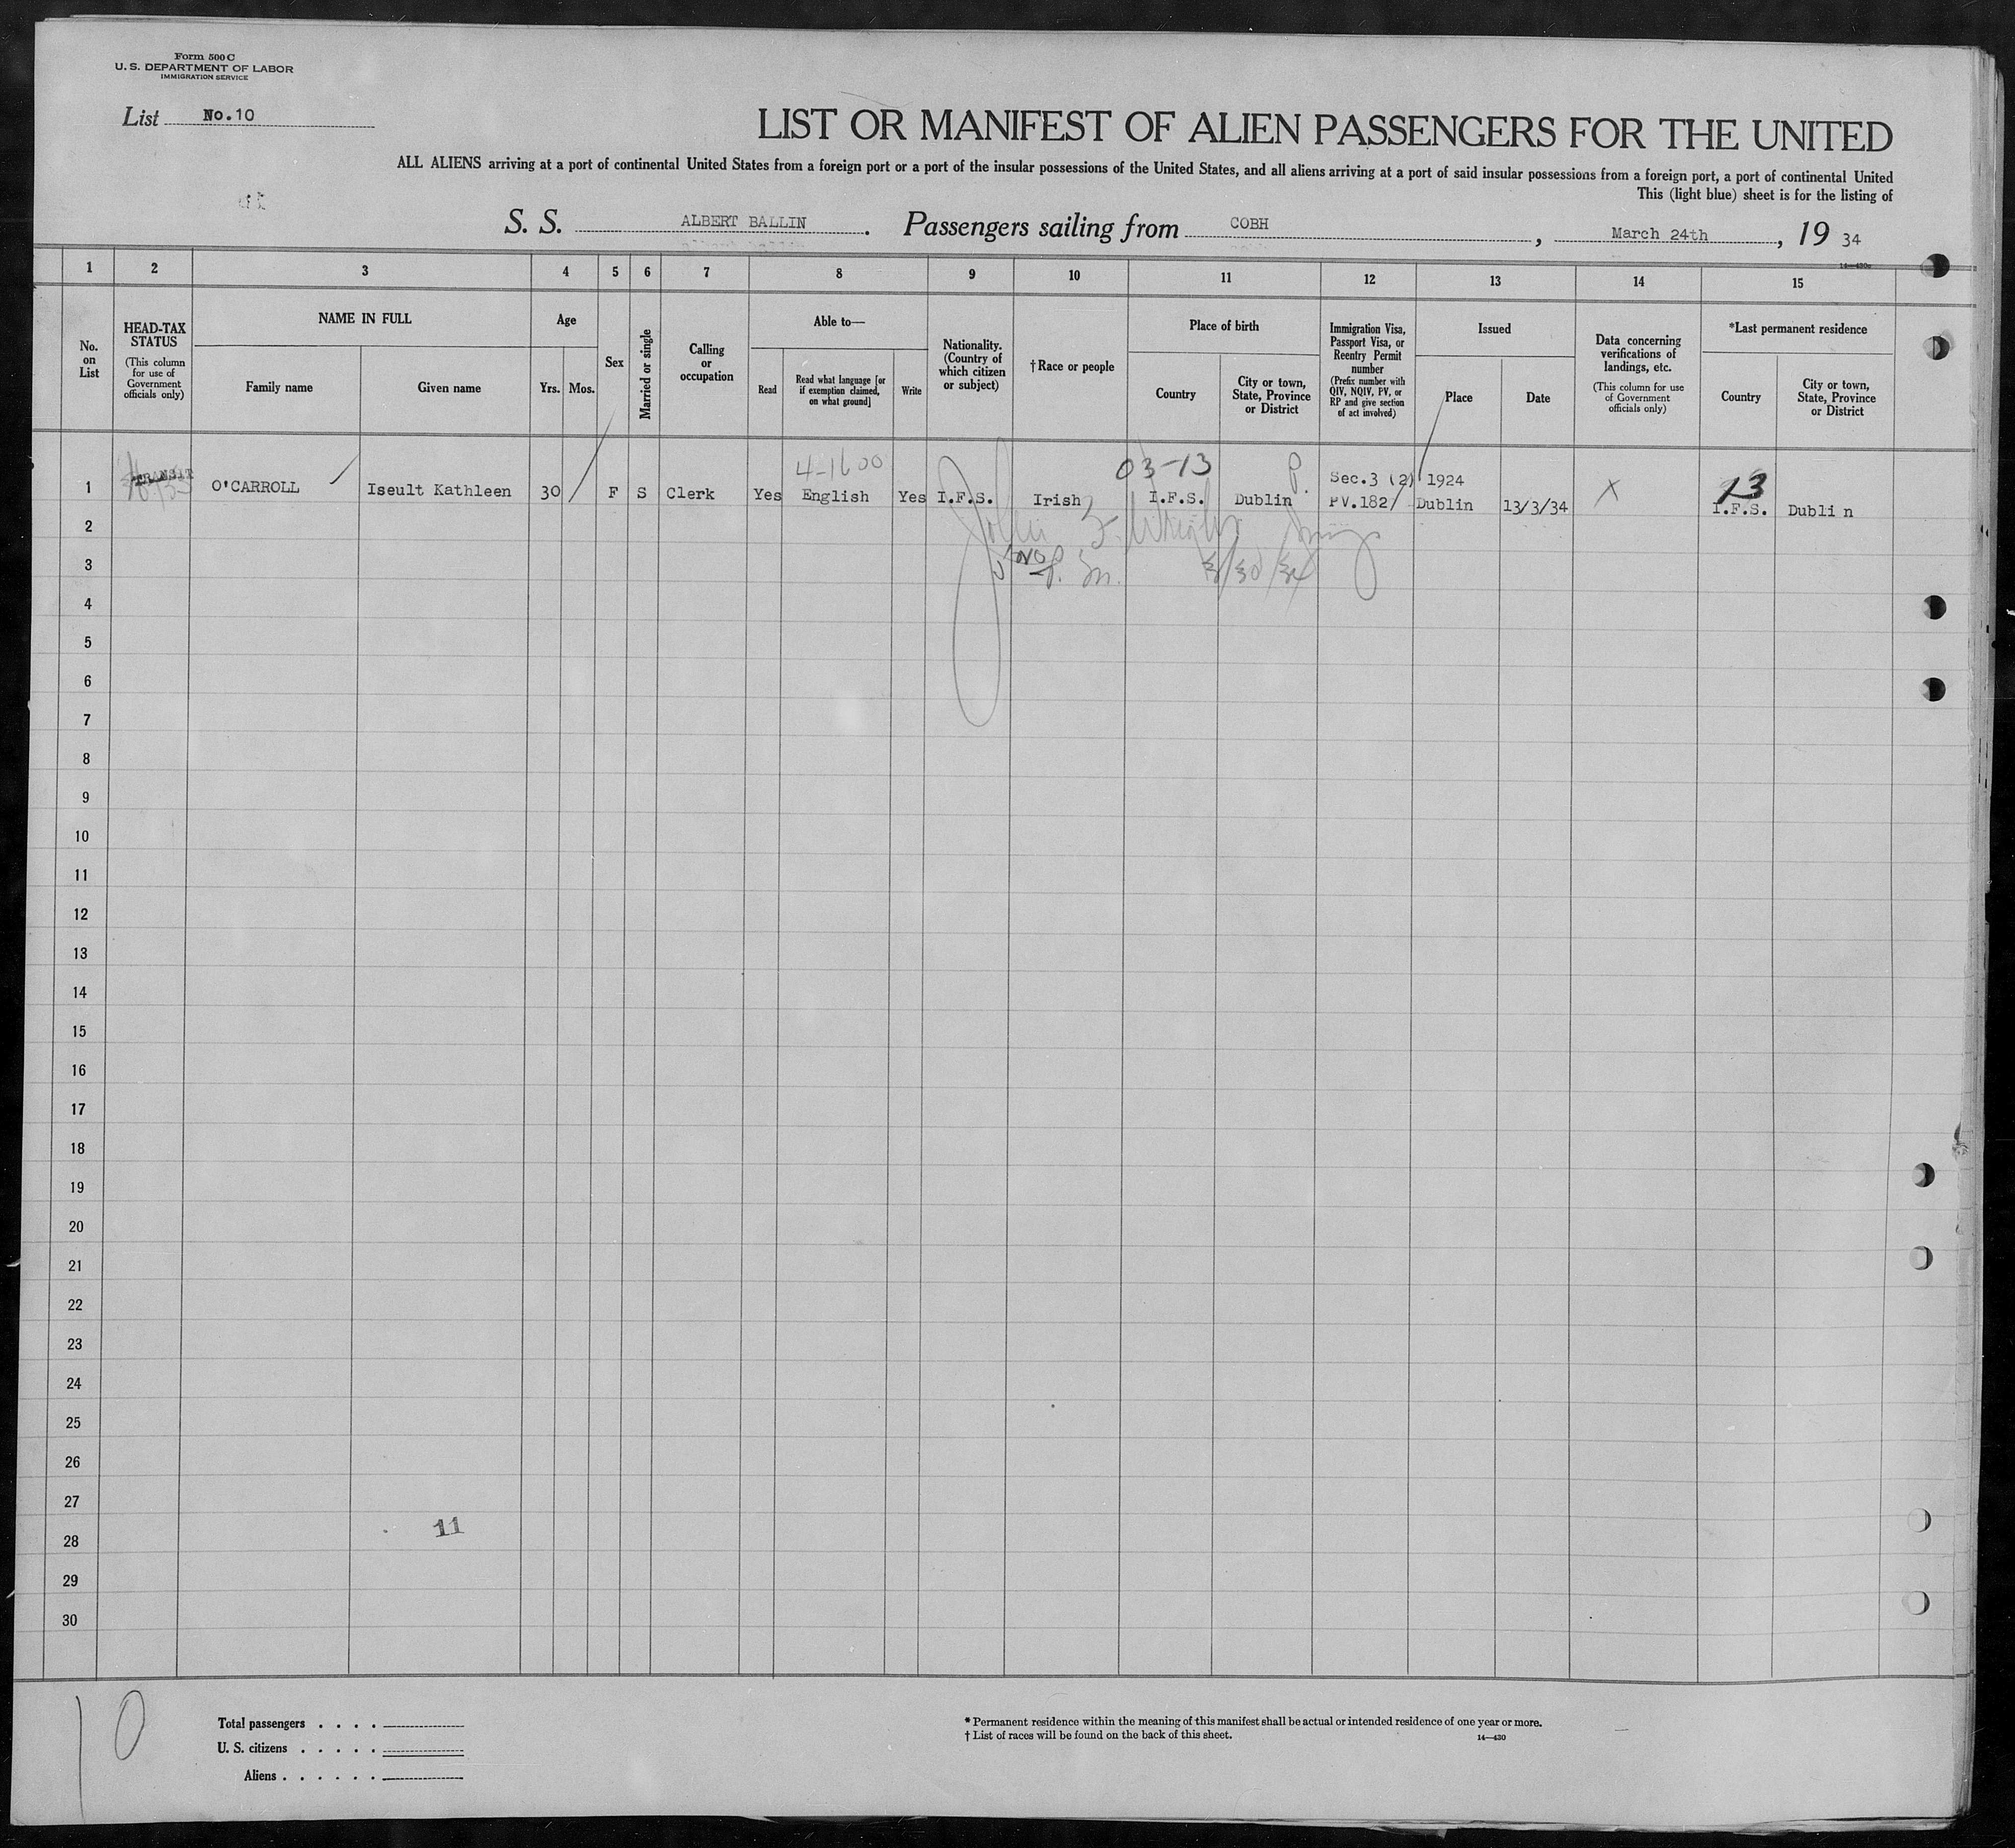 Form 500 C
U. S. DEPARTMENT OF LABOR
IMMIGRATION SERVICE
List No.10
LIST OR MANIFEST OF ALIEN PASSENGERS FOR THE UNITED
ALL ALIENS arriving at a port of continental United States from a foreign port or a port of the insular possessions of the United States, and all aliens arriving at a port of said insular possessions from a foreign port, a port of continental United
This (light blue) sheet is for the listing of
S. S. ALBERT BALLIN. Passengers sailing from COBH, March 24th, 19 34
14—430a
1 2 3 4 5 6 7 8 9 10 11 12 13 14 15
No. on List
HEAD-TAX STATUS
(This column for use of Government officials only)
NAME IN FULL
Family name
Given name
Age
Yrs. Mos.
Sex
Married or single
Calling or occupation
Able to—
Read
Read what language [or if exemption claimed, on what ground]
Write
Nationality. (Country of which citizen or subject)
†Race or people
Place of birth
Country
City or town, State, Province or District
Immigration Visa, Passport Visa, or Reentry Permit number
(Prefix number with QIV, NQIV, PV, or RP and give section of act involved)
Issued
Place
Date
Data concerning verifications of landings, etc.
(This column for use of Government officials only)
*Last permanent residence
Country
City or town, State, Province or District
4-1600 03-13 P. Sec.3 (2) 1924 13
1 TRANSIT O'CARROLL Iseult Kathleen 30 F S Clerk Yes English Yes I.F.S. Irish I.F.S. Dublin PV.182 Dublin 13/3/34 X I.F.S. Dublin
2
3 3/30/34
4
5
6
7
8
9
10
11
12
13
14
15
16
17
18
19
20
21
22
23
24
25
26
27
28 11
29
30
10
Total passengers . . . .
U. S. citizens . . . . .
Aliens . . . . . .
* Permanent residence within the meaning of this manifest shall be actual or intended residence of one year or more.
† List of races will be found on the back of this sheet.
14—430